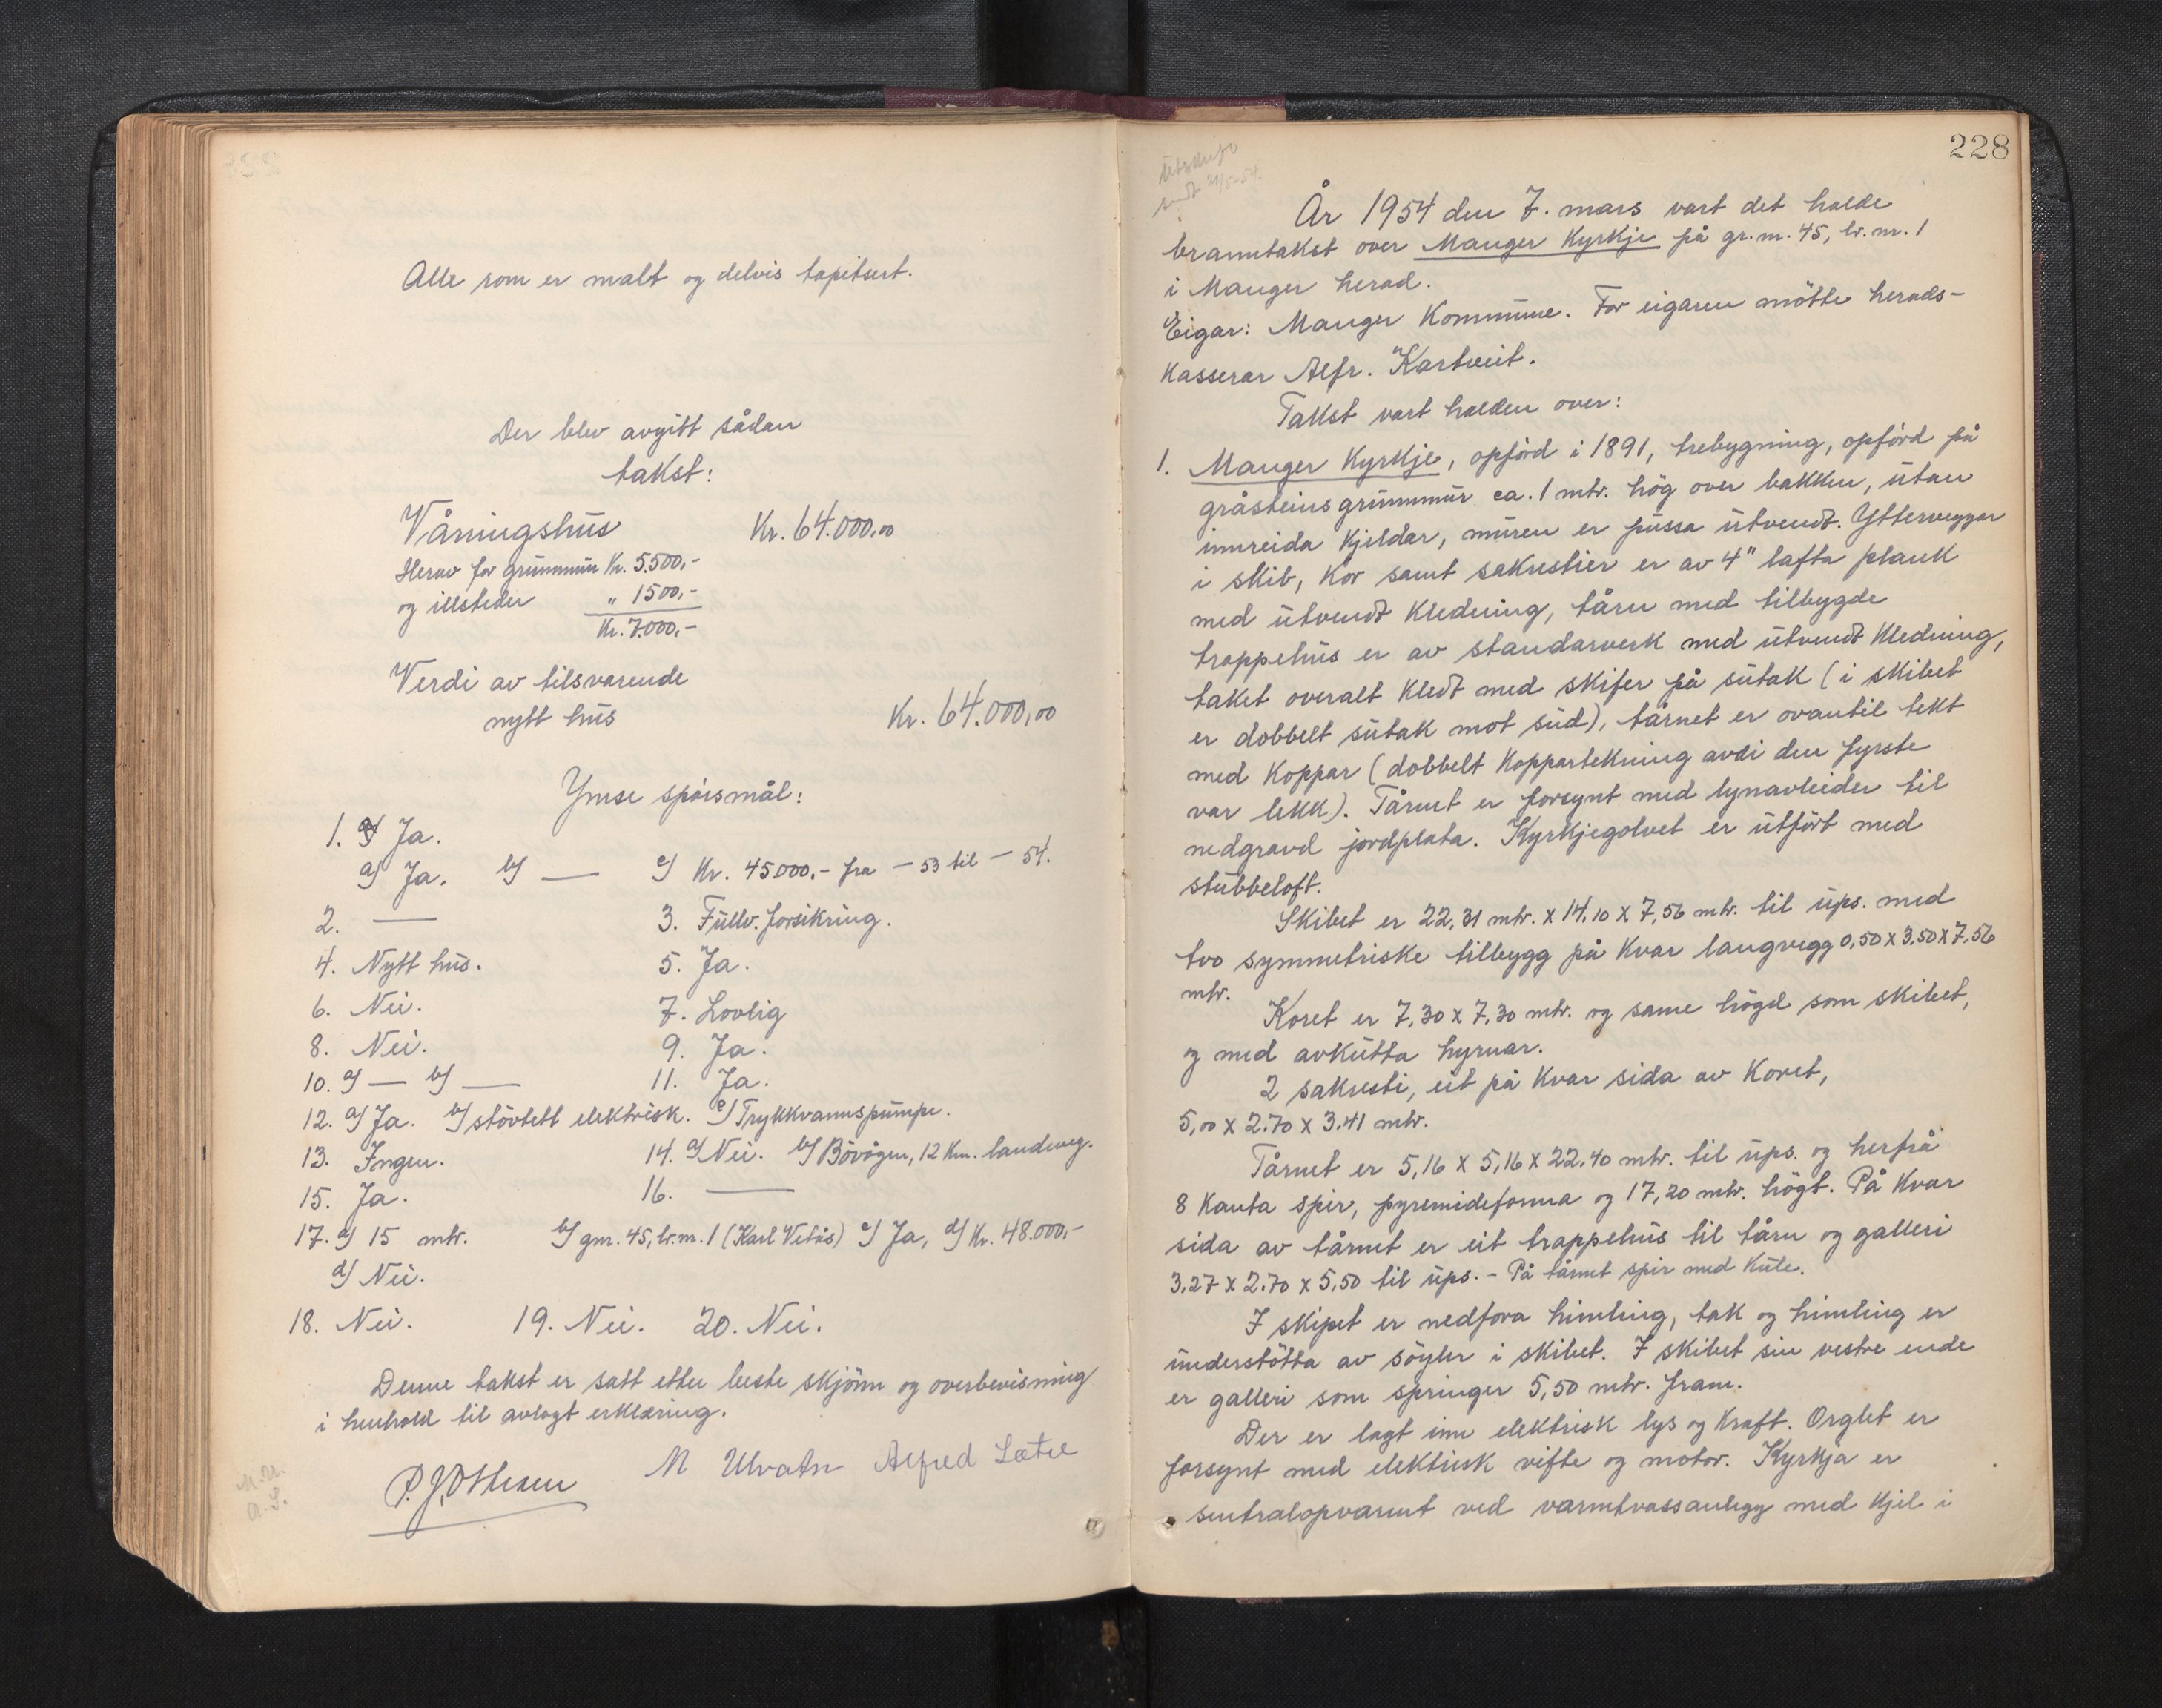 Alle rom er malt og delvis tapitsert.
Der blev avgitt sådan
takst:
Våningshus Kr. 64.000,00
Herav for grunnmur Kr. 5.500,-
og illsteder " 1500,-
Kr. 7.000,-
Verdi av tilsvarende
nytt hus Kr. 64.000,00
Ymse spörsmål:
1. Ja.
a) Ja. b) — c) Kr. 45.000,- fra - 53 til - 54.
2. — 3. Fullv. forsikring.
4. Nytt hus. 5. Ja.
6. Nei. 7. Lovlig
8. Nei. 9. Ja.
10. a) — b) — 11. Ja.
12. a) Ja. b) stövtett elektrisk. c) Trykkvannspumpe.
13. Ingen. 14. a) Nei. b) Bövågen, 12 Km. landeveg.
15. Ja. 16. —
17. a) 15 mtr. b) gnr. 45, br.nr. 1 (Karl Vetås) c) Ja, d) Kr. 48.000,-
d) Nei.
18. Nei. 19. Nei. 20. Nei.
Denne takst er satt etter beste skjönn og overbevisning
i henhold til avlagt erklæring.
P. J. Othesen M Ulvatn Alfred Sætre
M.U.
A.S.
228
Utskrift
sendt 21/5-54.
År 1954 den 7. mars vart det halde
branntakst over Manger Kyrkje på gr.nr. 45, br.nr. 1
i Manger herad.
Eigar: Manger Kommune. For eigaren mötte herads-
kasserar Alfr. Kartveit.
Takst vart halden over:
1. Manger Kyrkje, opförd i 1891, trebygning, opförd på
gråsteinsgrunnmur ca. 1 mtr. hög over bakken, utan
innreida kjeldar, muren er pussa utvendt. Ytterveggar
i skib, kor samt sakrestier er av 4" lafta plank
med utvendt kledning, tårn med tilbygde
trappehus er av standarverk med utvendt kledning,
taket overalt kledt med skifer på sutak (i skibet
er dobbelt sutak mot sud), tårnet er ovantil tekt
med koppar (dobbelt koppartekning avdi den fyrste
var lekk). Tårnet er forsynt med lynavleider til
nedgravd jordplata. Kyrkjegolvet er utfört med
stubbeloft.
Skibet er 22,31 mtr. x 14.10 x 7,56 mtr. til ups. med
tvo symmetriske tilbygg på kvar langvegg 0,50 x 3.50 x 7,56
mtr.
Koret er 7,30 x 7,30 mtr. og same högd som skibet,
og med avkutta hyrnar.
2 sakresti, eit på kvar sida av koret,
5,00 x 2.70 x 3.41 mtr.
Tårnet er 5,16 x 5,16 x 22.40 mtr. til ups. og herfrå
8 kanta spir, pyremideforma og 17,20 mtr. högt. På kvar
sida av tårnet er eit trappehus til tårn og galleri
3.27 x 2.70 x 5,50 til ups. - På tårnet spir med kule.
I skipet er nedfora himling, tak og himling er
understötta av söyler i skibet. I skibet sin vestre ende
er galleri som springer 5,50 mtr. fram.
Der er lagt inn elektrisk lys og kraft. Orglet er
forsynt med elektrisk vifte og motor. Kyrkja er
sentralopvarmt ved varmtvassanlegg med kjel i